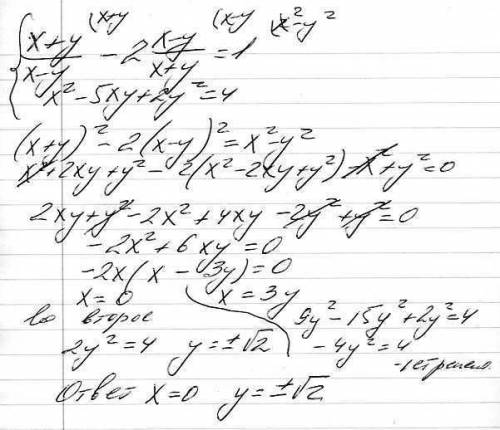 (x+y (x-y x²-y²
{ x+y/x-y - 2 x-y/x+y = 1
x²-5xy+2y²=4
(x+y)²-2(x-y)²=x²-y²
x²+2xy+y²-2(x²-2xy+y²)-x²+y²=0
2xy+y²-2x²+4xy-2y²+y²=0
-2x²+6xy=0
-2x(x-3y)=0
x=0 x=3y
во второе 9y²-15y²+2y²=4
2y²=4 y=±√2 -4y²=4
Ответ x=0 y=±√2